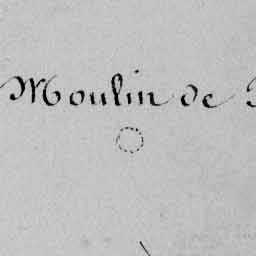 Moulin de